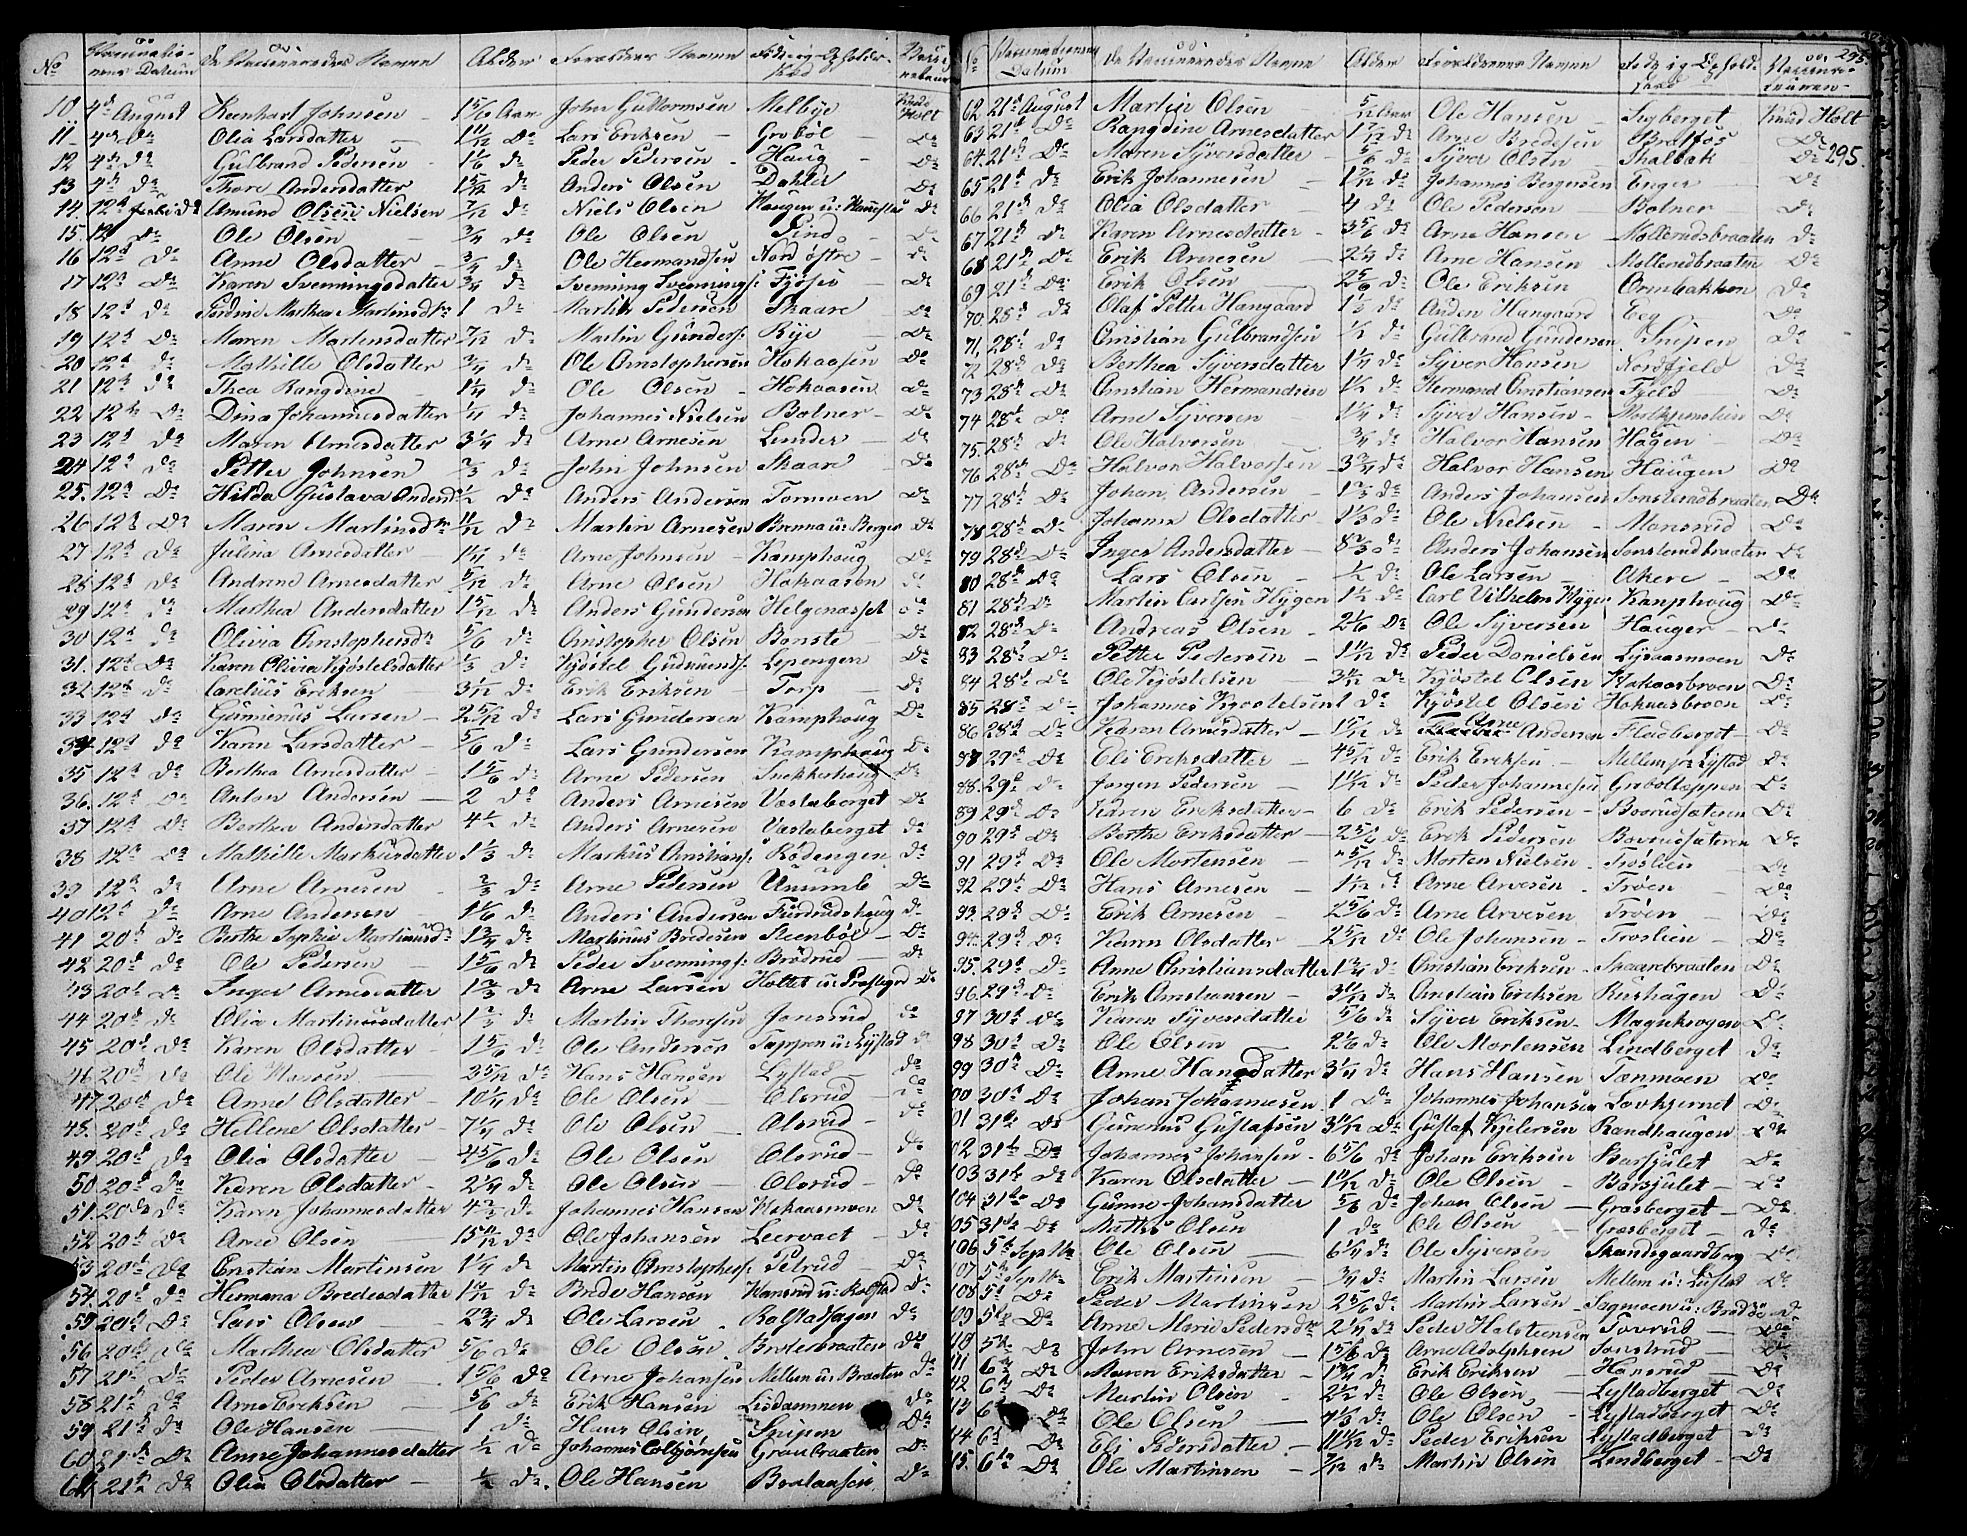 No Vaccinationens Datum De Vaccineredes Navne Alder Forældres Navne Føde og Opholdssted
10 4de August Reenhart Johnsen 1 5/6 Aar John Guttormsen Melbye Knud Holt
11 4de do Olia Larsdatter 11/12 do Lars Eriksen Grøbøl do
12 4de do Gulbrand Pedersen 1 1/6 do Peder Pedersen Haug do
13 4de do Thore Andersdatter do Anders Olsen Dahler do
14 12te Amund Olsen Nielsen 7/12 do Niels Olsen Haugen do
15 12 do Ole Olsen 3/4 do Ole Olsen Lund do
16 12te do Anne Olsdatter 3/4 do Ole Hermandsen Nord østre do
17 12te do Karen Svenningsdatter 3/4 do Svenning Svennings: do
18 12te do Marthea Martinsdtr 1 do Martin Pedersen Skaare do
19 12te do Maren Martensdatter 7/12 do Martin Gunders: Rye do
20 12te do Mathille Olsdatter 3/4 do Ole Christophersen Hokaasen do
21 12te do Thea Rangdine 1 1/4 do Ole Olsen Hokaasen do
22 12te do Dina Johannesdatter do Johannes Nielsen Bolner do
23 12te do Maren Arnesdatter 3 1/4 do Arne Arnesen Lunder do
24 12te do Petter Johnsen 2/3 do John Johnsen Skaare do
25 12te do Hilda Gustava Andersd: 1/2 do Anders Andersen Tormoen do
26 12te do Maren Martinsdtr 11/12 do Martin Arnesen Brenna u: Berger do
27 12te do Julina Arnesdatter do Arne Johnsen Kamphoug do
28 12te do Andrine Arnesdatter 5/12 do Arne Olsen Hokaasen do
29 12te do Marthea Andersdatter 1 5/12 do Anders Gundersen Helgenasset do
30 12te do Olivia Christophersdtr 5/6 do Christopher Olsen Bonste do
31 12te do Karen Olivia Kjøstelsdatter 2/3 do Kjøstel Gudmunds: Lepengen do
32 12te do Carelius Eriksen 3 1/12 do Erik Eriksen Torp do
33 12te do Gunnerius Larsen 2 5/12 do Lars Gundersen Kamphoug do
34 12te do Karen Larsdatter 5/6 do Lars Gundersen Kamphoug do
35 12te do Berthea Arnesdatter 1 5/6 do Arne Pedersen Snekkehoug do
36 12te do Anton Andersen 2 do Anders Arnesen Vestaberget do
37 12te do Berthea Andersdatter 4 1/2 do Anders Arnesen Vestaberget do
38 12te do Mathille Markusdatter 1 1/3 do Markus Christians: Rødengen do
39 12te do Arne Arnesen 2/3 do Arne Pedersen Unumb do
40 12te do Arne Andersen 1 1/6 do Anders Andersen Furdrudshoug do
41 20de do Berthe Sophie Martinusdtr 1 3/4 do Martinus Bredesen Steenbøl do
42 20de do Ole Pedersen 1 5/6 do Peder Svennings: Brødrud do
43 20de do Inger Arnesdatter 1 2/3 do Arne Larsen Holtet u: Præstegr do
44 20de do Olia Martinusdatter 1 2/3 do Martin Thoresen Jonsrud do
45 20de do Karen Olsdatter 1 5/6 do Ole Andersen Tappen u: Lystad do
46 20de do Ole Hansen 3 5/12 do Hans Hansen Lystad do
47 20de do Anne Olsdatter 10 1/4 do Ole Olsen Olsrud do
48 20de do Hellene Olsdatter 7 1/4 do Ole Olsen Olsrud do
49 20de do Olia Olsdatter 4 5/6 do Ole Olsen Olsrud do
50 20de do Karen Olsdatter 2 1/4 do Ole Olsen Olsrud do
51 20de do Karen Johannesdatter do Johannes Hansen Hokaasmoen do
52 20de do Arne Olsen do Ole Johansen Leervaet do
53 20de do Cristian Martinsen 1 1/4 do Martin Christophers: Pelrud do
54 20de do Hermana Bredesdatter do Brede Hansen Hansrud u: Rolstad do
55 20de do Lars Olsen 2 3/4 do Ole Larsen Rolstadhagen do
56 20de do Marthea Olsdatter 5/6 do Ole Olsen Brolesbraaten do
57 21de do Peder Arnesen 1 5/6 do Arne Johansen Mellem u: Braaten do
58 21de do Arne Eriksen 5/6 do Erik Hansen Lisdammen do
59 21de do Ole Hansen 1 do Hans Olsen Snipen do
60 21de do Anne Johannesdatter 1/2 do Johannes Colbjørnsen Graubraaten do
61 21de do Olia Olsdatter 1/2 do Ole Hansen do
No Vaccinationens Datum De Vaccineredes Navne Alder Forældrenes Navne Føde og Opholdssted 295
62 21de August Martin Olsen 5/12 Aar Ole Hansen Sogberget Knud Holt
63 21de do Rangdine Arnesdatter 1 7/12 do Arne Bredesen Bratfos do
64 21de do Maren Syversdatter 5/6 do Syver Olsen Skalbak do 295.
65 21de do Erik Johannesen 1 7/12 do Johannes Bergersen Enger do
66 21de do Olia Olsdatter 4 do Ole Pedersen Bolner do
67 21de do Karen Arnesdatter 3 5/6 do Arne Hansen Mollerudsbraaten do
68 21de do Erik Arnesen 2 1/4 do Arne Hansen Mollerudbraaten do
69 21de do Erik Olsen 2 5/6 do Ole Eriksen Ormbakken do
70 28de do Olaf Petter Hangaard 1 1/3 do Anders Hangaard Eeg do
71 28de do Christian Gulbrandsen do Gulbrand Gundersen Snipen do
72 28de do Berthea Syversdatter 1 1/4 do Syver Hansen Nordfjeld do
73 28de do Christian Hermandsen 1 1/2 do Hermand Christiansen Fjeld do
74 28de do Arne Syversen 1 1/4 do Syver Hansen do
75 28de do Ole Halvorsen 3/4 do Halvor Hansen Hagen do
76 28de do Halvor Halvorsen 3 3/4 do Halvor Hansen Haugen do
77 28de do Johan Andersen 1 2/3 do Anders Johansen Sonsterudbraaten do
78 28de do Johanne Olsdatter 1 1/3 do Ole Nielsen Monsrud do
79 28de do Inger Andersdatter 8 2/3 do Anders Johansen Sonsterudbraaten do
80 28de do Lars Olsen 1/2 do Ole Larsen Akere do
81 28de do Martin Carlsen Hygen 1 1/2 do Carl Vilhelm Hygen Kamphoug do
82 28de do Andreas Olsen 2 1/6 do Ole Syversen Hauger do
83 28de do Petter Pedersen 1 11/12 do Peder Danielsen Lysaasmoen do
84 28de do Ole Kjøstelsen do Kjøstel Olsen Hokaasbroen do
85 28de do Johannes Kjøstelsen 1 do Kjøstel Olsen Hokaasbroen do
86 28de do Karen Arnesdatter 1 5/12 do Arne Andersen Fladberget do
87 29de do Eli Eriksdatter 4 5/12 do Erik Eriksen Mellem fra Lystad do
88 29de do Jørgen Pedersen 1 11/12 do Peder Johannesen Grøbolteppen do
89 29de do Karen Eriksdatter 6 do Erik Pedersen Boorudsæteren do
90 29de do Berthe Eriksdatter do Erik Pedersen Boorudsæteren do
91 29de do Ole Mortensen 5/12 do Morten Nielsen Troslien do
92 29de do Hans Arnesen 1 1/12 do Arne Arvesen Trøen do
93 29de do Erik Arnesen 2 5/6 do Arne Arvesen Trøen do
94 29de do Karen Olsdatter 2 5/12 do Ole Johansen Troslien do
95 29de do Anne Christiansdatter 1 3/4 do Christian Eriksen Skaarebraaten do
96 29de do Erik Christiansen 3 11/12 do Christian Eriksen Rushagen do
97 30te do Karen Syversdatter 5/6 do Syver Eriksen Magnkrogen do
98 30te do Ole Olsen 2 1/6 do Ole Mortensen Lindberget do
99 30te do Anne Hansdatter 3 1/4 do Hans Hansen Tonmoen do
00 30te do Johan Johannesen 1 do Johannes Johansen Tovkjernet do
01 31te do Gunerius Gustafsen 3 11/12 do Gustaf Kjelersen Randhaugen do
02 31te do Johannes Johansen 6 5/6 do Johan Eriksen Barsjulet do
103 31te do Karen Olsdatter 1 11/12 do Ole Olsen Barsjulet do
104 31te do Gunne Johansdatter 5/6 do Johan Olsen Grasberget do
105 31te do Mathis Olsen 1 do Ole Olsen Grasberget do
106 5te Septbr Ole Olsen 6 1/4 do Ole Syversen Skandsgaardsberg do
107 5te Septbr Erik Martinsen 3/4 do Martin Larsen Mellem u: Lystad do
108 5te do Peder Martinsen 2 5/6 do Martin Larsen Sagmoen u: do
109 5te do Anne Marie Pedersdtr 2 1/4 do Peder Halsteensen Tovrud do
10 5te do John Arnesen 1 5/6 do Arne Adolphsen Tonsrud do
11 6te do Maren Eriksdatter do Erik Eriksen Hansrud do
12 6te do Martin Olsen 2 1/2 do Ole Olsen Lystadberget do
13 6te do Ole Olsen 4 1/3 do Ole Olsen Lystadberget do
14 6te do Eli Pedersdatter 11 11/12 do Peder Eriksen Lystadberget do
15 6te do Ole Martinsen 7/12 do Martin Olsen Lindberget do